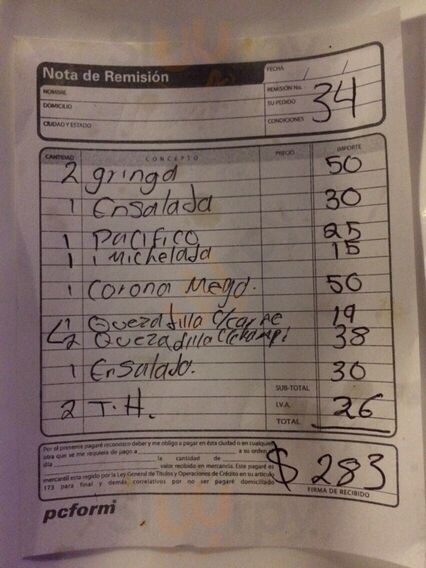 Nota de Remisión
FECHA / /
NOMBRE
REMISIÓN No.
DOMICILIO
SU PEDIDO
34
CIUDAD Y ESTADO
CONDICIONES
CANTIDAD CONCEPTO PRECIO IMPORTE
2 gringa 50
1 Ensalada 30
1 PaciFico 25
1 michelada 15
1 Corona Mega. 50
1 Quezadilla c/carne 19
2 Quezadilla c/champi 38
1 Ensalada. 30
SUB-TOTAL
2 T.H. I.V.A. 26
TOTAL
Por el presente pagaré reconozco deber y me obligo a pagar en esta ciudad o en cualquier
otra que se me requiera de pago a a su orden
la cantidad de
día valor recibido en mercancía. Este pagaré es
mercantil esta regido por la Ley General de Títulos y Operaciones de Crédito en su artículo
173 para final y demás correlativos por no ser pagaré domiciliado
$ 283
FIRMA DE RECIBIDO
pcform